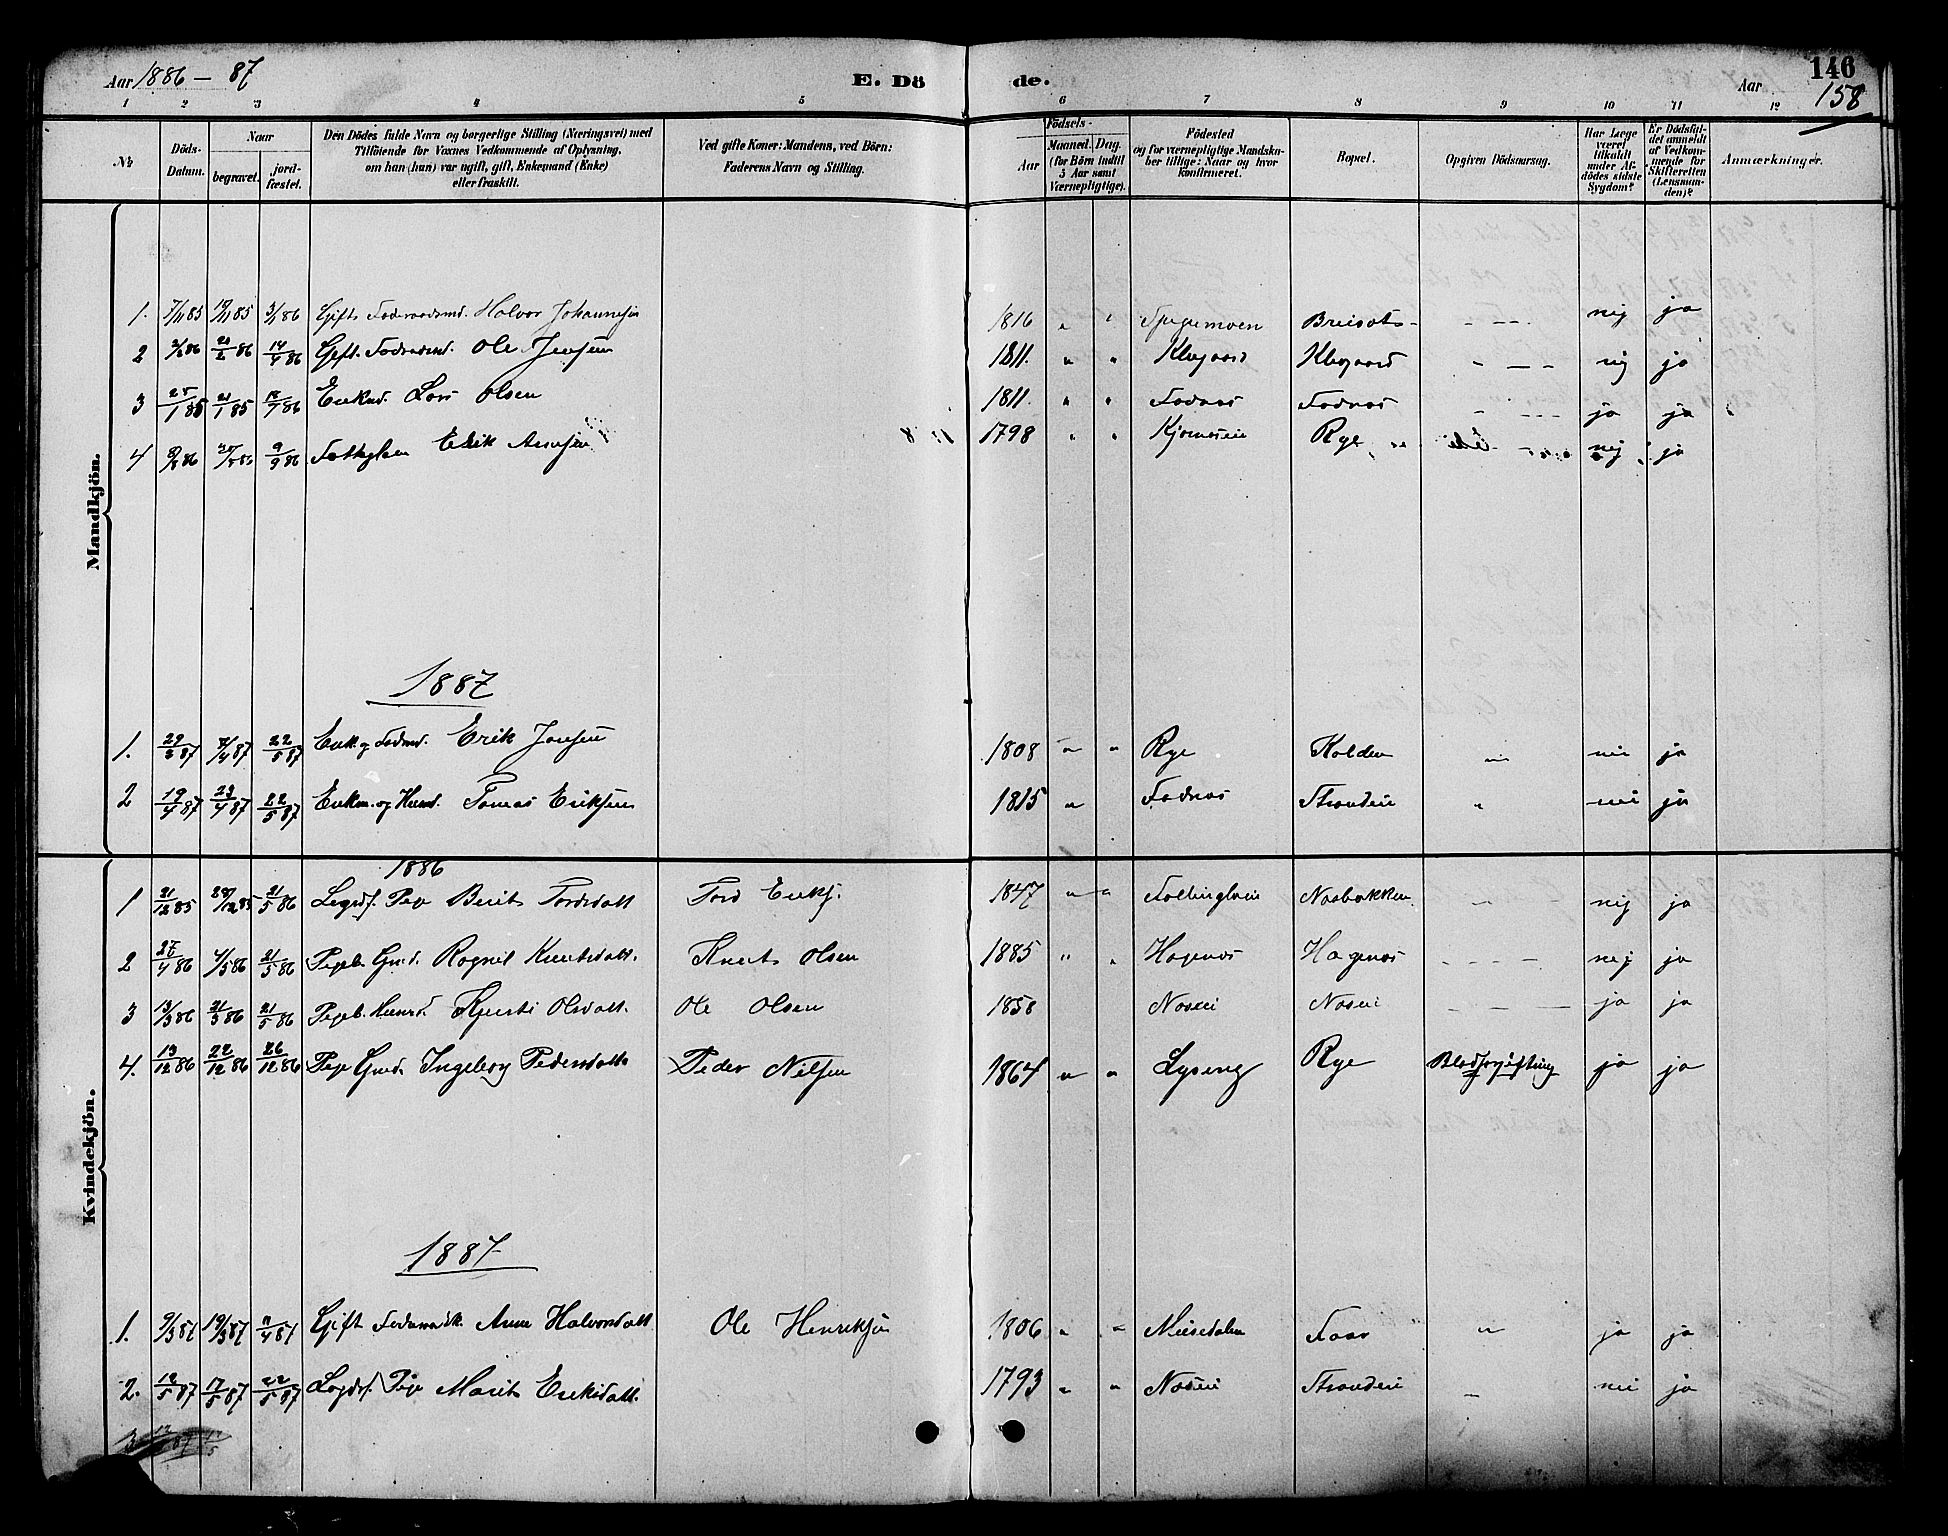 Aar 1886 - 87
E. Dö
de.
Aar
146
158
1 2 3 4 5 6 7 8 9 10 11 12
No
Döds-Datum.
Naar
begravet.
jordfæstet.
Den Dödes fulde Navn og borgerlige Stilling (Næringsvei) med
Tilföiende for Voxnes Vedkommende af Oplysning,
om han (hun) var ugift, gift, Enkemand (Enke)
eller fraskilt.
Ved gifte Koner: Mandens, ved Börn:
Faderens Navn og Stilling.
Födsels-
Aar
Maaned. Dag.
(for Börn indtil
5 Aar samt
Værnepligtige).
Födested
og for værnepligtige Mandska-
ber tillige: Naar og hvor
konfirmeret.
Bopæl.
Opgiven Dödsaarsag.
Har Læge
været
tilkaldt
under Af-
dödes sidste
Sygdom?
Er Dödsfal-
det anmeldt
af Vedkom-
mende for
Skifteretten
(Lensman-
den)?
Anmærkninger.
Mandkjön.
1. 7/11 85 3/1 86 Gift Halvor Johannesen 1816 " " nej ja
2 2/2 86 21/2 86 14/4 86 Gift. Ole Jensen 1811. " " Klegaard Klegaard nej ja
3 21/1 85 18/7 86 Enkmd. Lars Olsen 1811. " " Fodnes Fodnes ja ja
4 9/9 86 Erik 1798 " " Rye nej ja
1887
1. 7/4 87 22/5 87 Erik Jensen 1808 " " Rye Kolden " nei ja
2 19/4 87 23/4 87 22/5 87 Tomas Eriksen 1815 " Fodnes Strandeie " nei ja
Kvindekjön.
1886
1 21/12 85 28/12 85 21/5 86 Legdsl. Pige Berit Tordsdatt Tord Eriks. 1847 " " " nej ja
2 27/4 86 4/5 86 21/5 86 Pigeb. Gmd. Rognil Knutsdatt. Knut Olsen 1885 " " Hagenes Hagenes nej ja
3 13/5 86 21/5 86 21/5 86 Pigeb. Kjersti Olsdatt. Ole Olsen 1858 Noseie Noseie ja ja
4. 13/12 86 22/12 86 26/12 86 Pige Gmd. Ingeborg Pedersdatt Peder Nilsen 1864 " " Lyseng Rye Blodforgiftning ja ja
1887
1. 9/3 87 19/3 87 11/4 87 Gift Anne Halvorsdatt Ole Henriksen 1806 " " Faar " ja ja
2. 12/5 87 17/5 87 22/5 87 Legdsl. Pige Marit Eriksdatt. 1793 " " Noseie Strandeie nei ja
3